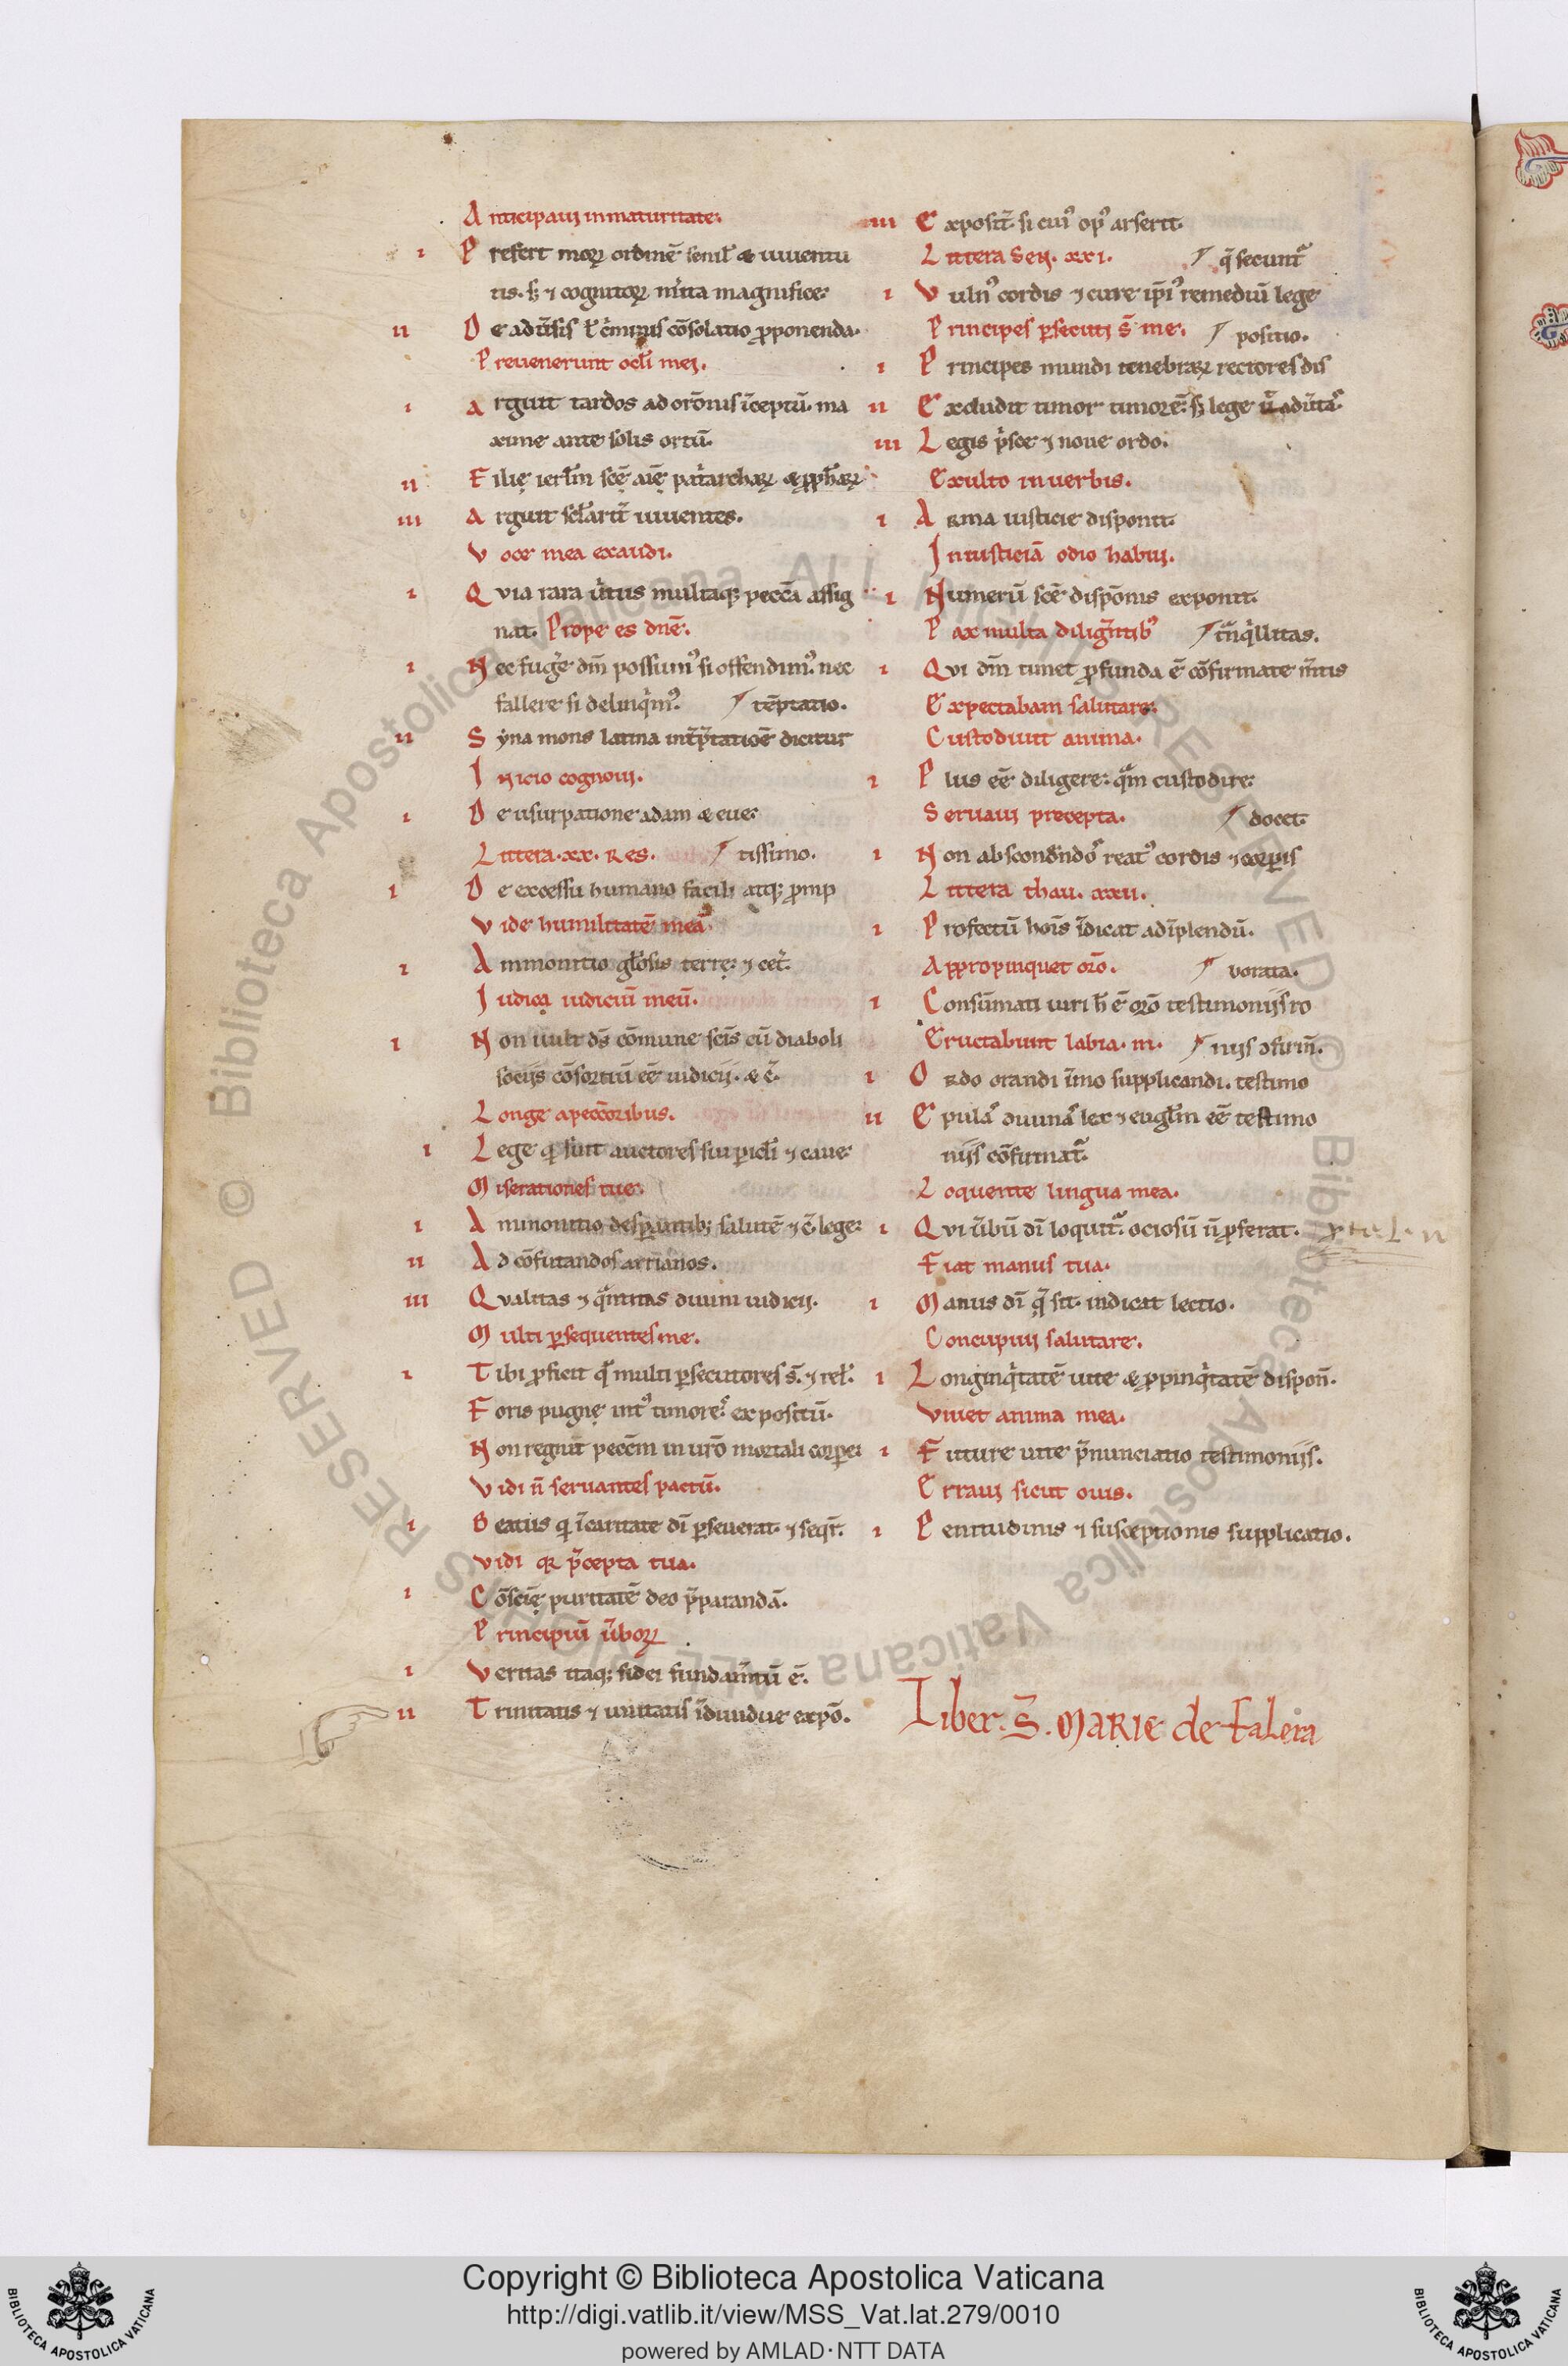 Anticipaui inmaturitate.
i Prefert morꝝ ordinē senil̄ & iuuentu
tis. sꝫ ⁊ cognitorꝝ
magnifice.
ii De adũsis ł cͥminis cōsolatio ꝓponenda.
Preuenerunt ocłi mei.
i arguit tardos ad orōnis īceptū. ma
xime ante solis ortū.
ii Filię ierłm scē aīę patͥarcharꝝ & ꝓph̄arꝝ
iii arguit uiuentes.
Voce mea exaudi.
i Qvia rara ũtus multaqꝫ peccā assig
nat. Prope es dn̄e.
i Nec fugͤe dm̄ possumꝰ si offendimꝰ. nec
fallere si delinqͥmꝰ. tēptatio.
ii Syna mons latina dicitur
Inicio cognoui.
i De usurpatione adam & eue.
Littera. xx. Res. tissimo.
i De excessu humano facili atqꝫ ꝓmp
Vide humilitatē meā.
i Ammonitio gło̅sis terrę. ⁊ cet̃.
Iudica iudiciū meū.
i Non uult ds̄ cōmune scīs cū diaboli
sociis cōsortiū eē iudicii. & c̃.
Longe apecc̄oribus.
i Lege qͥ sint auctores sui ꝑicłi ⁊ caue.
Miserationes tue.
i Ammonitio despantibꝫ salutē ⁊ c̃ lege.
ii Ad cōfutandos arrianos.
iii Qvalitas ⁊ qͣntitas diuini iudicii.
Multi ꝑsequentes me.
i Tibi ꝓficit qͩ multi ꝑsecutores s̄. ⁊ rel̃.
Foris pugnę intꝰ timoreˢ. expositū.
Non regnet pecc̄m in uro̅ mortali corꝑei
Vidi n̄ seruantes pactū.
i Beatus qͥ īcaritate dī ꝑseuerat. ⁊ seqr̄.
vidi qꝛ p̄cepta tua.
i Cōscię puritatē deo p̄parandā.
Principiū ũborꝝ
i Veritas itaqꝫ fidei fundam̄tū ē.
ii Trinitatis ⁊ unitatis īdiuidue expō.
iiii Exposit̃. si cuiꝰ opꝰ arserit.
Littera Sen. xxi. q̄ secuntᷣ
i Vulnꝰ cordis ⁊ cure ip̄iꝰ remediū lege
Principes ꝑsecuti s̄ me. positio.
i Principes mundi tenebrarꝝ rectores dis
ii Excludit timor timorē. sꝫ lege
iii Legis pͥsce ⁊ noue ordo.
Exulto in uerbis.
i Arma iusticie disponit.
Iniusticiā odio habui.
i Numerū scē dispōnis exponit.
Pax multa diligentibꝰ tͣnqͥllitas.
i Qvi dm̄ timet ꝓfunda ē cōfirmate m̄tis
Expectabam salutare.
Custodiuit anima.
i Plus eē diligere. qͣm custodire.
Seruaui precepta. docet.
i Non abscondēdoˢ reatꝰ cordis ⁊ corꝑis
Littera thau. xxii.
i Profectū hoīs īdicat adīplendū.
Appropinquet orō. borata.
i Consūmati uiri h̄ ē orō testimoniis ro
Eructabunt labia. m. niis ↄfirm̄.
i Ordo orandi īmo supplicandi. testimo
ii Epulaˢ diuinaˢ lex ⁊ eugłm eē testimo
niis cōfirmatᷣ.
Loquente lingua mea.
i Qvi ũbū dī loquitᷣ. ociosū n̄ ꝓferat.
Fiat manus tua.
i Manus dī q̄ sit. indicat lectio.
Concupiui salutare.
i Longinqͥtatē uite & ꝓpinqͥtatē dispon̄.
Viuet anima mea.
i Future uite p̄nunciatio testimoniis.
Erraui sicut ouis.
i Penitudinis ⁊ susceptionis supplicatio.
Liber. S̄. Marie de Faleria
© Biblioteca Apostolica Vaticana ALL RIGHTS RESERVED
© Biblioteca Apostolica Vaticana ALL RIGHTS RESERVED
Copyright © Biblioteca Apostolica Vaticana
http://digi.vatlib.it/view/MSS_Vat.lat.279/0010
powered by AMLAD·NTT DATA
BIBLIOTECA APOSTOLICA VATICANA
BIBLIOTECA APOSTOLICA VATICANA